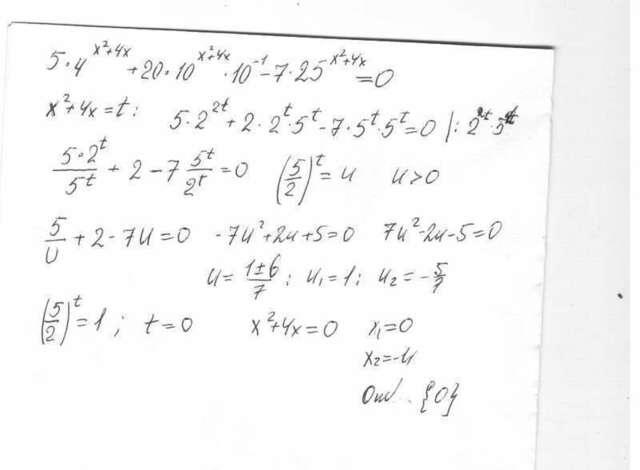 5·4^(x²+4x) + 20·10^(x²+4x)·10^(-1) - 7·25^(x²+4x) = 0
x²+4x=t: 5·2^(2t) + 2·2^t·5^t - 7·5^t·5^t = 0 |: 2^t·5^t
(5·2^t)/(5^t) + 2 - 7 (5^t)/(2^t) = 0 (5/2)^t = u u>0
5/u + 2 - 7u = 0 -7u²+2u+5=0 7u²-2u-5=0
u = (1±6)/7 ; u₁=1; u₂=-5/7
(5/2)^t = 1; t=0 x²+4x=0 x₁=0
x₂=-4
Отв. {0}